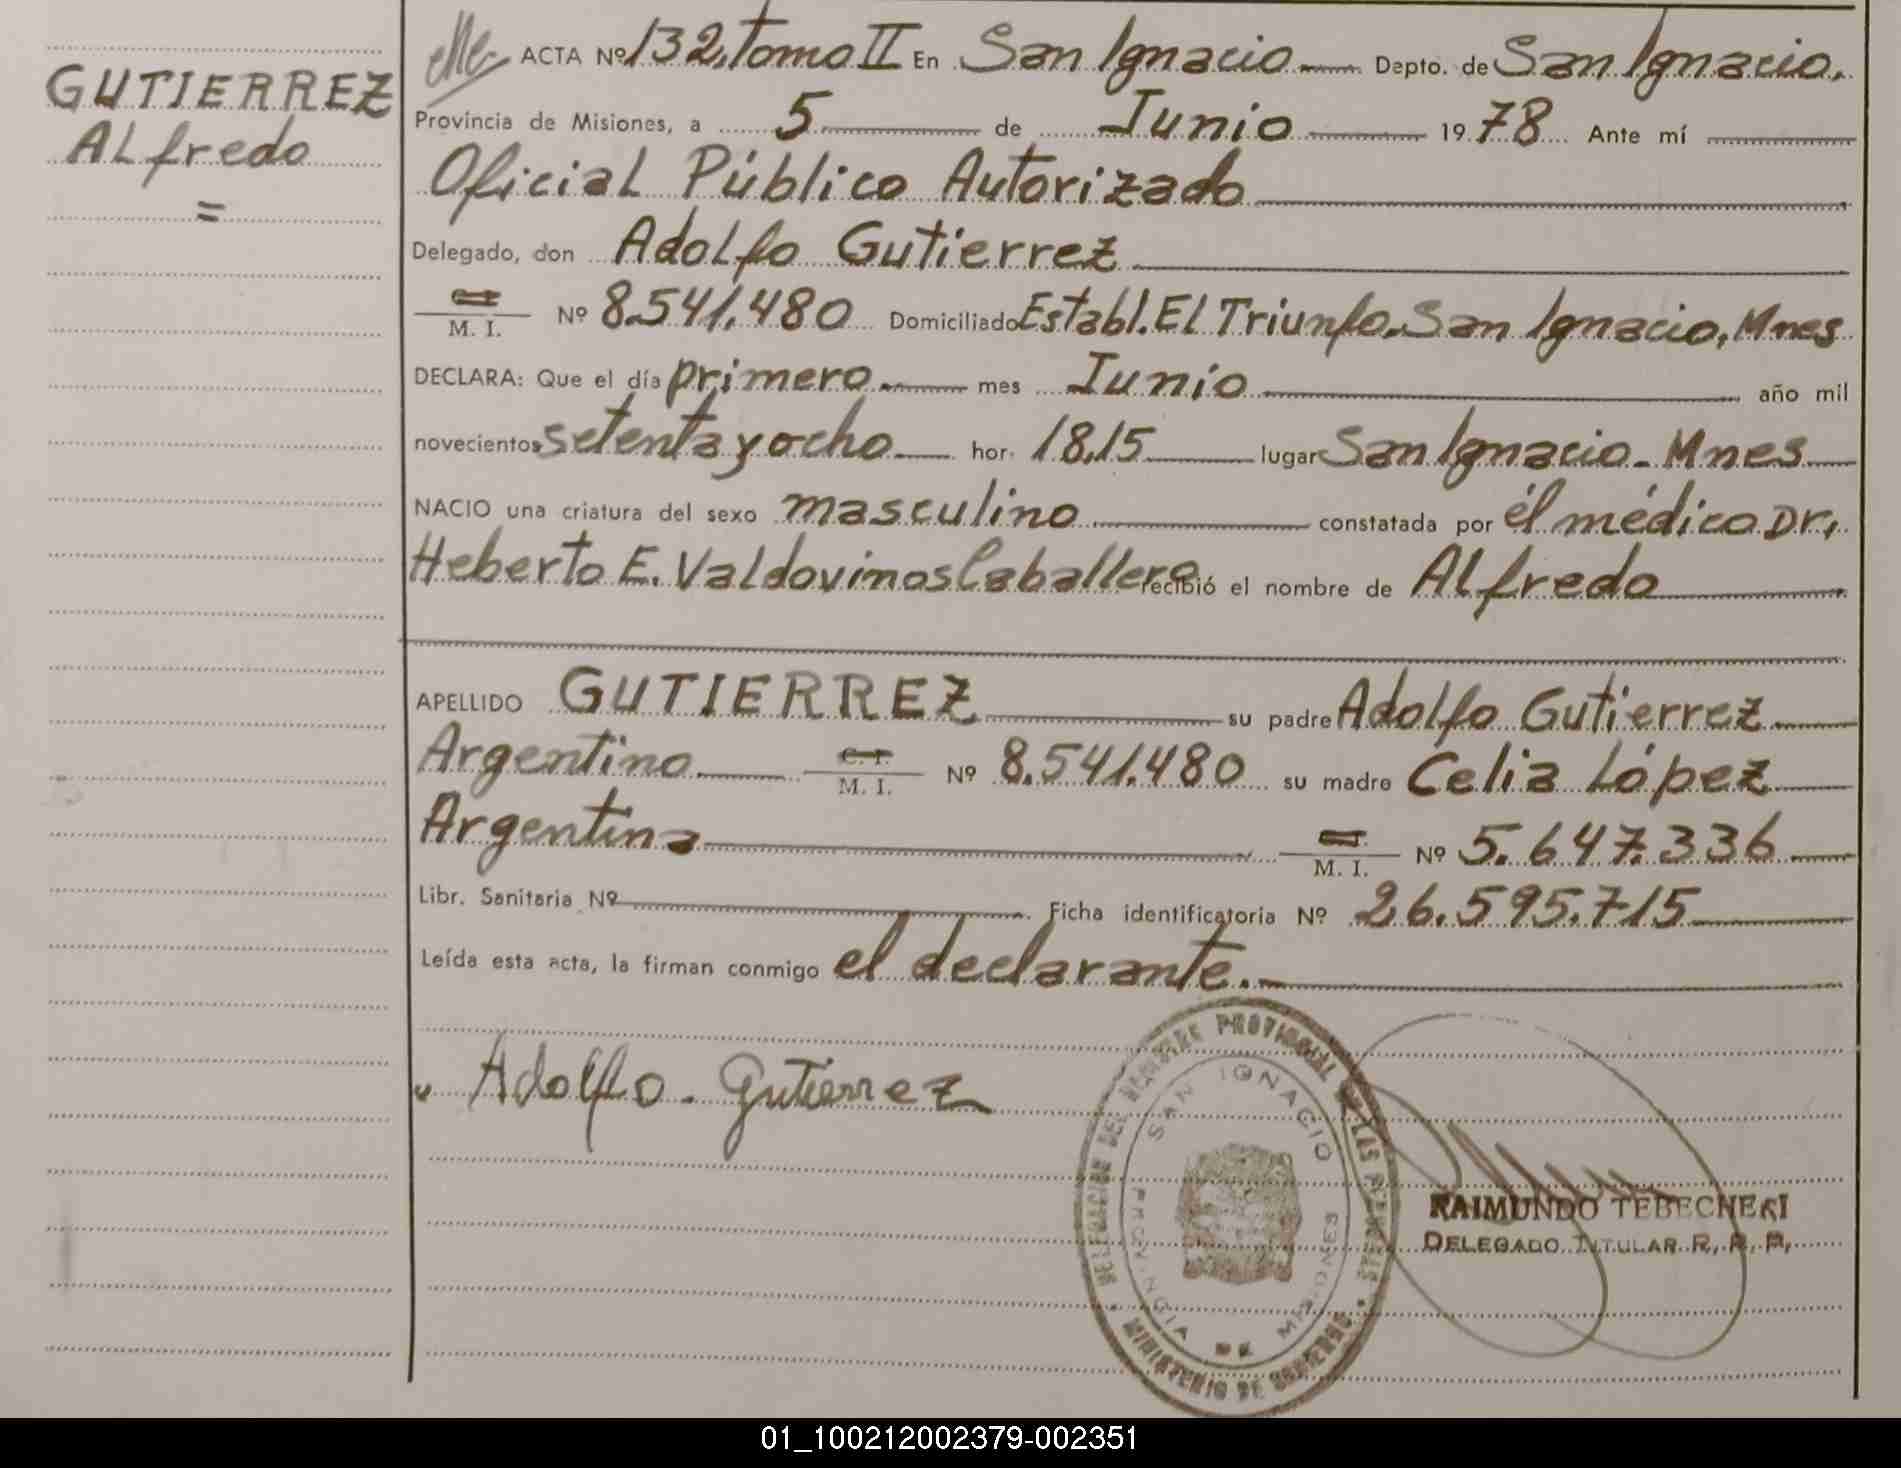 GUTIERREZ
Alfredo
=
ACTA Nº 132, Tomo II En San Ignacio Depto. de San Ignacio.
Provincia de Misiones, a 5 de Junio 1978 Ante mí
Oficial Público Autorizado
Delegado, don Adolfo Gutierrez
M. I. Nº 8.541.480 Domiciliado Establ. El Triunfo. San Ignacio, Mnes
DECLARA: Que el día primero mes Junio año mil
novecientos setenta y ocho hor. 18,15 lugar San Ignacio - Mnes
NACIO una criatura del sexo masculino constatada por él médico Dr.
Heberto E. Valdovinos Caballero recibió el nombre de Alfredo
APELLIDO GUTIERREZ su padre Adolfo Gutierrez
Argentino C. I. M. I. Nº 8.541.480 su madre Celia López
Argentina M. I. Nº 5.647.336
Libr. Sanitaria Nº Ficha identificatoria Nº 26.595.715
Leída esta acta, la firman conmigo el declarante.
Adolfo - Gutierrez
DELEGACION DEL REGISTRO PROVINCIAL DE LAS PERSONAS
SAN IGNACIO
PROVINCIA DE MISIONES
MINISTERIO DE GOBIERNO
RAIMUNDO TEBECHERI
DELEGADO TITULAR R. P. P.
01_100212002379-002351